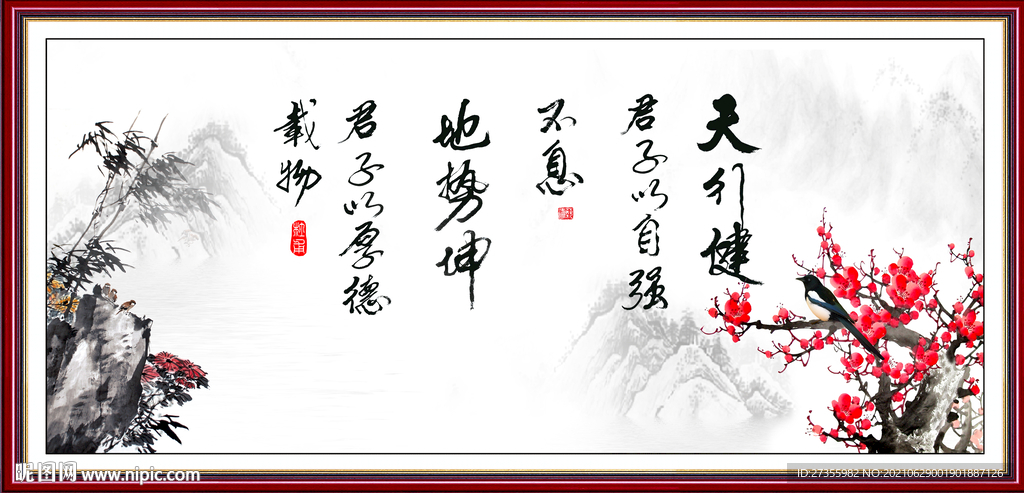 天行健
君子以自强
不息
地势坤
君子以厚德
载物
昵图网 www.nipic.com
ID:27355982 NO:20210629001901887126